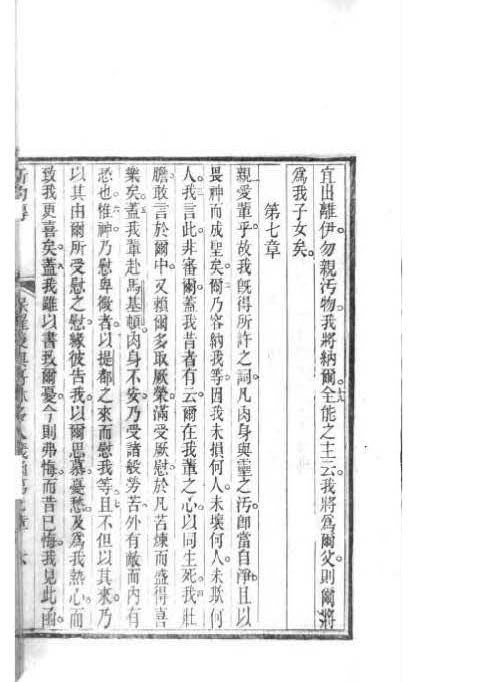 宜出離伊。勿親汚物。我將納爾。全能之主云。我將爲爾父。則爾將
爲我子女矣。
第七章
親愛輩乎。故我旣得所許之詞。凡肉身與靈之汚。卽當自淨。且以
畏神而成聖矣。爾乃容納我等。因我未損何人。未壞何人。未欺何
人。我言此非審爾。蓋我昔者有云。爾在我輩之心。以同生死。我壯
膽敢言於爾中。又賴爾多取厥榮。滿受厥慰。於凡苦煉而盛得喜
樂矣。蓋我輩赴馬基頓。肉身不安。乃受諸般勞苦。外有敵而內有
恐也。惟神乃慰卑微者。以提都之來而慰我等。且不但以其來。乃
以其由爾所受慰之慰。緣彼告我。以爾思慕憂愁。及爲我熱心。而
致我更喜矣。蓋我雖以書致爾憂。今則弗悔。而昔已悔。我見此函。